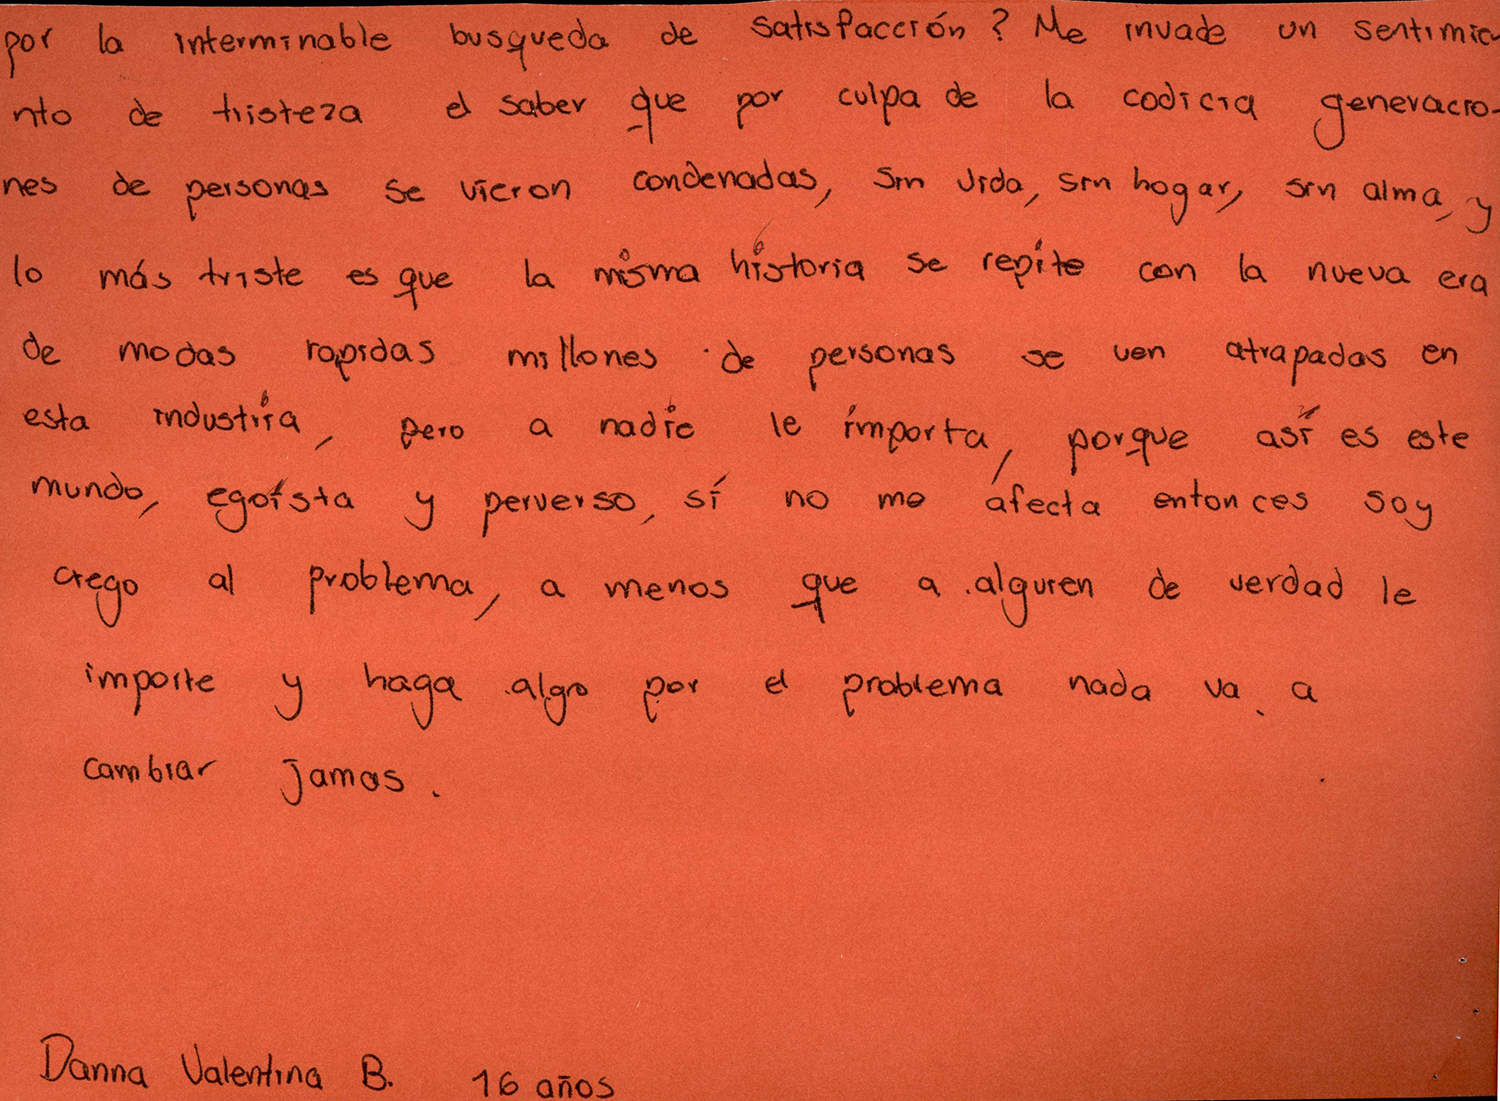 por la interminable busqueda de satisfacción? Me invade un sentimie-
nto de tristeza el saber que por culpa de la codicia generacio-
nes de personas se vieron condenadas, sin vida, sin hogar, sin alma, y
lo más triste es que la misma historia se repite con la nueva era
de modas rapidas millones de personas se ven atrapadas en
esta industira, pero a nadie le importa, porque así es este
mundo, egoísta y perverso, sí no me afecta entonces soy
ciego al problema, a menos que a alguien de verdad le
importe y haga algo por el problema nada va a
cambiar jamas.
Danna Valentina B. 16 años